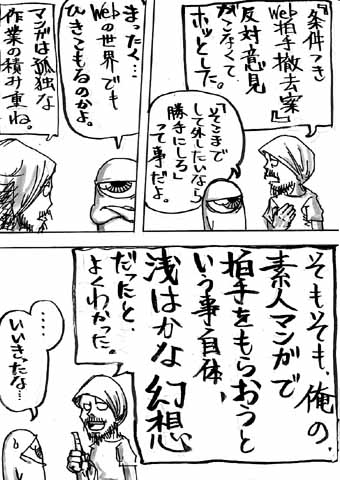 『条件つき
Web拍手撤去案』
反対意見
がでなくて
ホッとした。
「そこまで
して外したいなら
勝手にしろ」
って事だよ。
まったく…
Webの世界でも
ひきこもるのかよ。
マンガは孤独な
作業の積み重ね。
そもそも、俺の、
素人マンガで
拍手をもらおうと
いう事自体、
浅はかな幻想
だったと、
よくわかった。
・・・・
いいきったな…